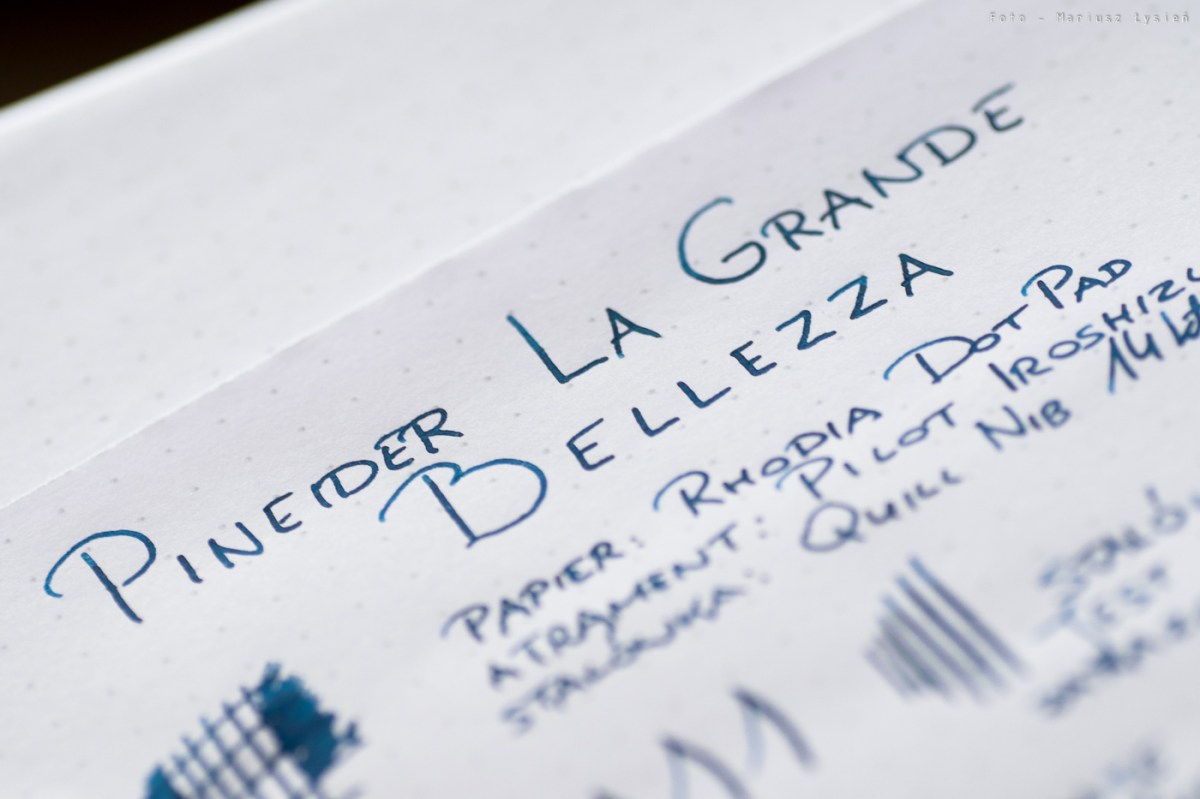 Foto - Mariusz Łysień
PINEIDER LA GRANDE
BELLEZZA
PAPIER: RHODIA DOT PAD
ATRAMENT: PILOT IROSHIZU
STALÓWKA: QUILL NIB 14 kt
TEST